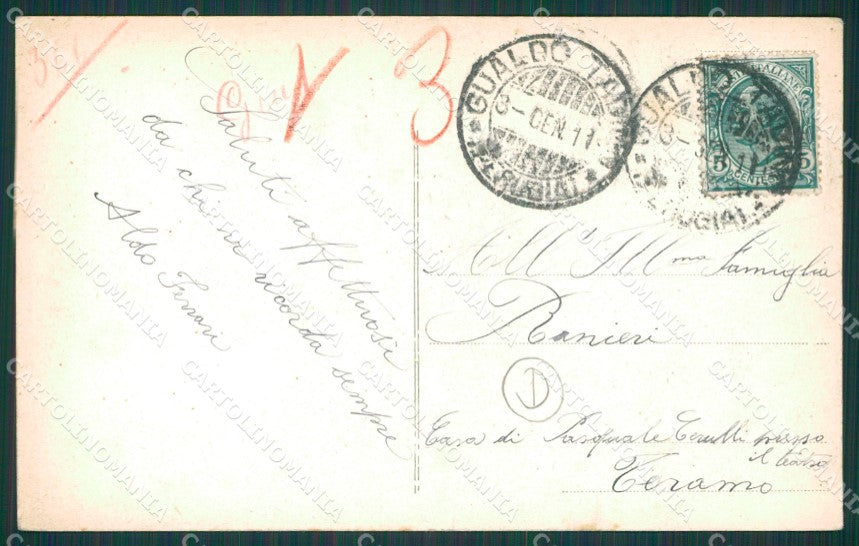 Saluti affettuosi
da chi vi ricorda sempre
Aldo Ferrari
3
GUALDO TAD
3 - GEN 11
(PERUGIA)
POSTE ITALIANE
5 CENTES 5
All' Ill.ma Famiglia
Ranieri
D
Casa di Pasquale Cerulli presso
il teatro
Teramo
CARTOLINOMANIA